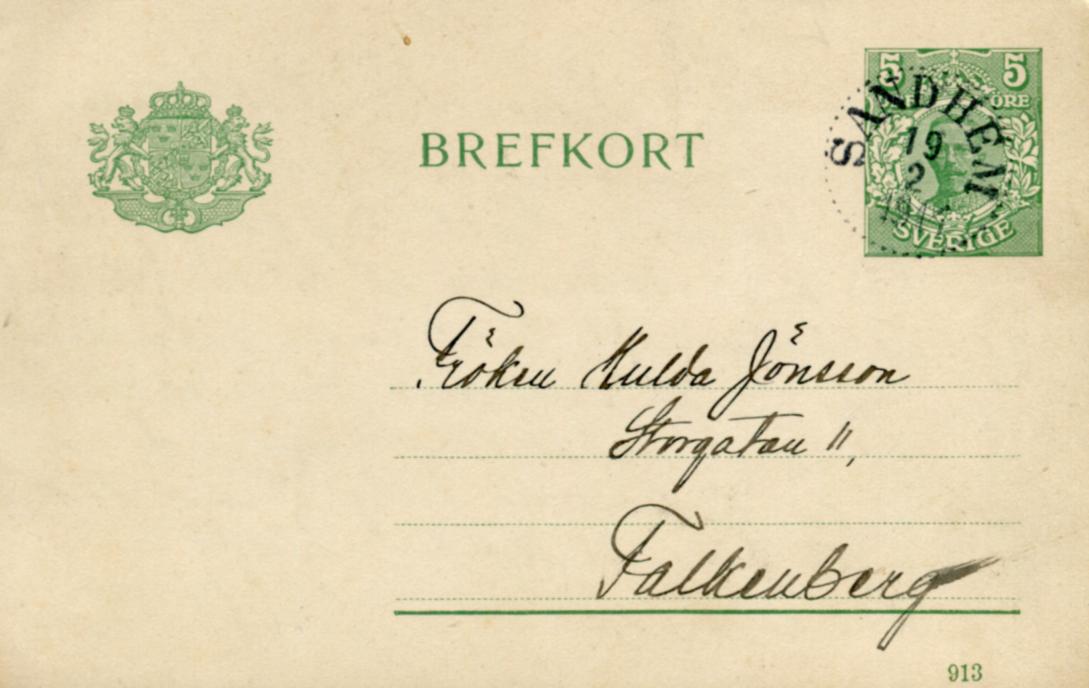 BREFKORT
5 5
ÖRE
SVERIGE
SANDHEM
19
2
Fröken Hulda Jönsson
Storgatan 11,
Falkenberg
913